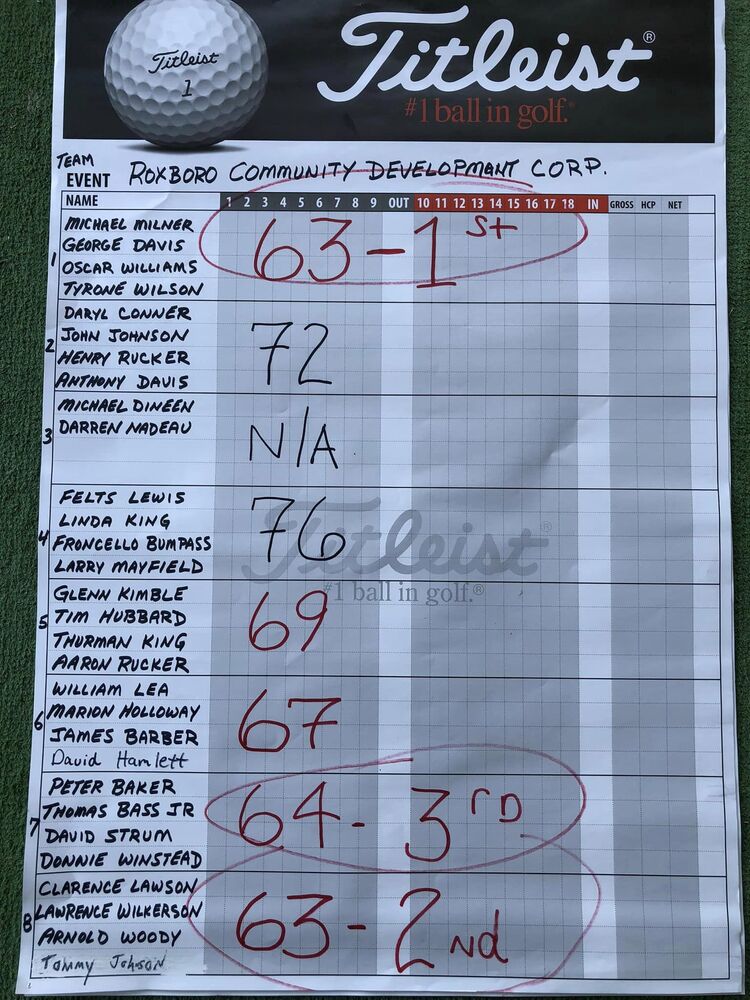 Titleist
1
Titleist®
#1 ball in golf.®
TEAM
EVENT ROXBORO COMMUNITY DEVELOPMENT CORP.
NAME 1 2 3 4 5 6 7 8 9 OUT 10 11 12 13 14 15 16 17 18 IN GROSS HCP NET
1
MICHAEL MILNER
GEORGE DAVIS
OSCAR WILLIAMS
TYRONE WILSON
63-1st
2
DARYL CONNER
JOHN JOHNSON
HENRY RUCKER
ANTHONY DAVIS
72
3
MICHAEL DINEEN
DARREN NADEAU
N/A
4
FELTS LEWIS
LINDA KING
FRONCELLO BUMPASS
LARRY MAYFIELD
76
Titleist®
#1 ball in golf.®
5
GLENN KIMBLE
TIM HUBBARD
THURMAN KING
AARON RUCKER
69
6
WILLIAM LEA
MARION HOLLOWAY
JAMES BARBER
David Hamlett
67
7
PETER BAKER
THOMAS BASS JR
DAVID STRUM
DONNIE WINSTEAD
64-3rD
8
CLARENCE LAWSON
LAWRENCE WILKERSON
ARNOLD WOODY
Tommy Johnson
63-2nd